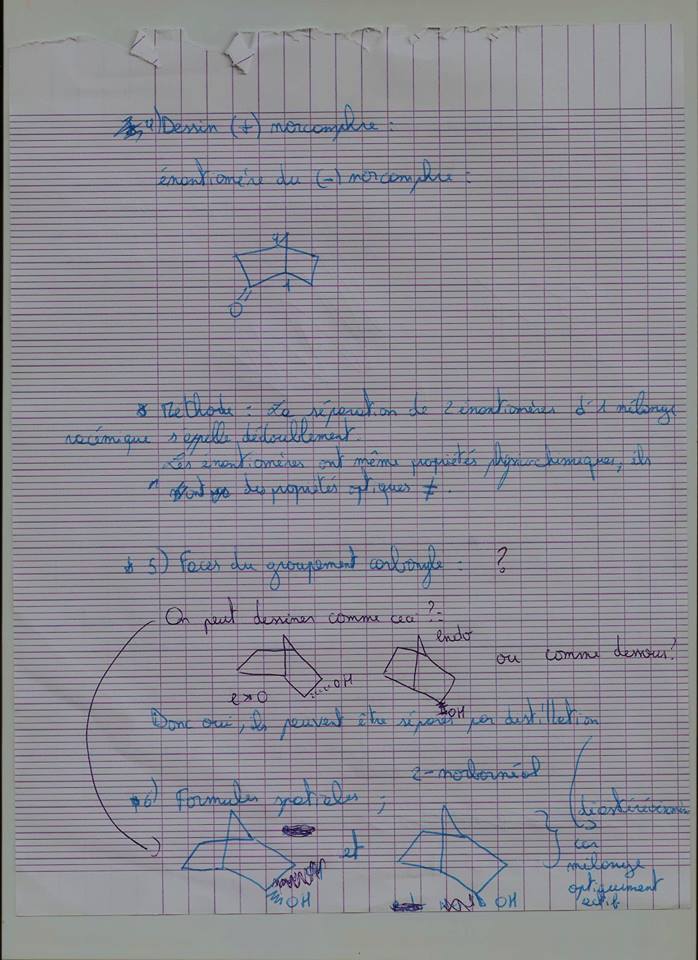 4) Dessin (+) norcamphre :
énantiomère du (-) norcamphre :
4
1
O
Méthode : La séparation de 2 énantiomères d'1 mélange
racémique s'appelle dédoublement.
Les énantiomères ont même propriétés physicochimiques, ils
ont des propriétés optiques ≠.
5) Faces du groupement carbonyle : ?
On peut dessiner comme ceci ?:
endo
OH
exo
OH
ou comme dessous?
Donc oui, ils peuvent être séparés par distillation
2-norbornéol
6) Formules spatiales ;
et
OH
OH
car
mélange
optiquement
actif